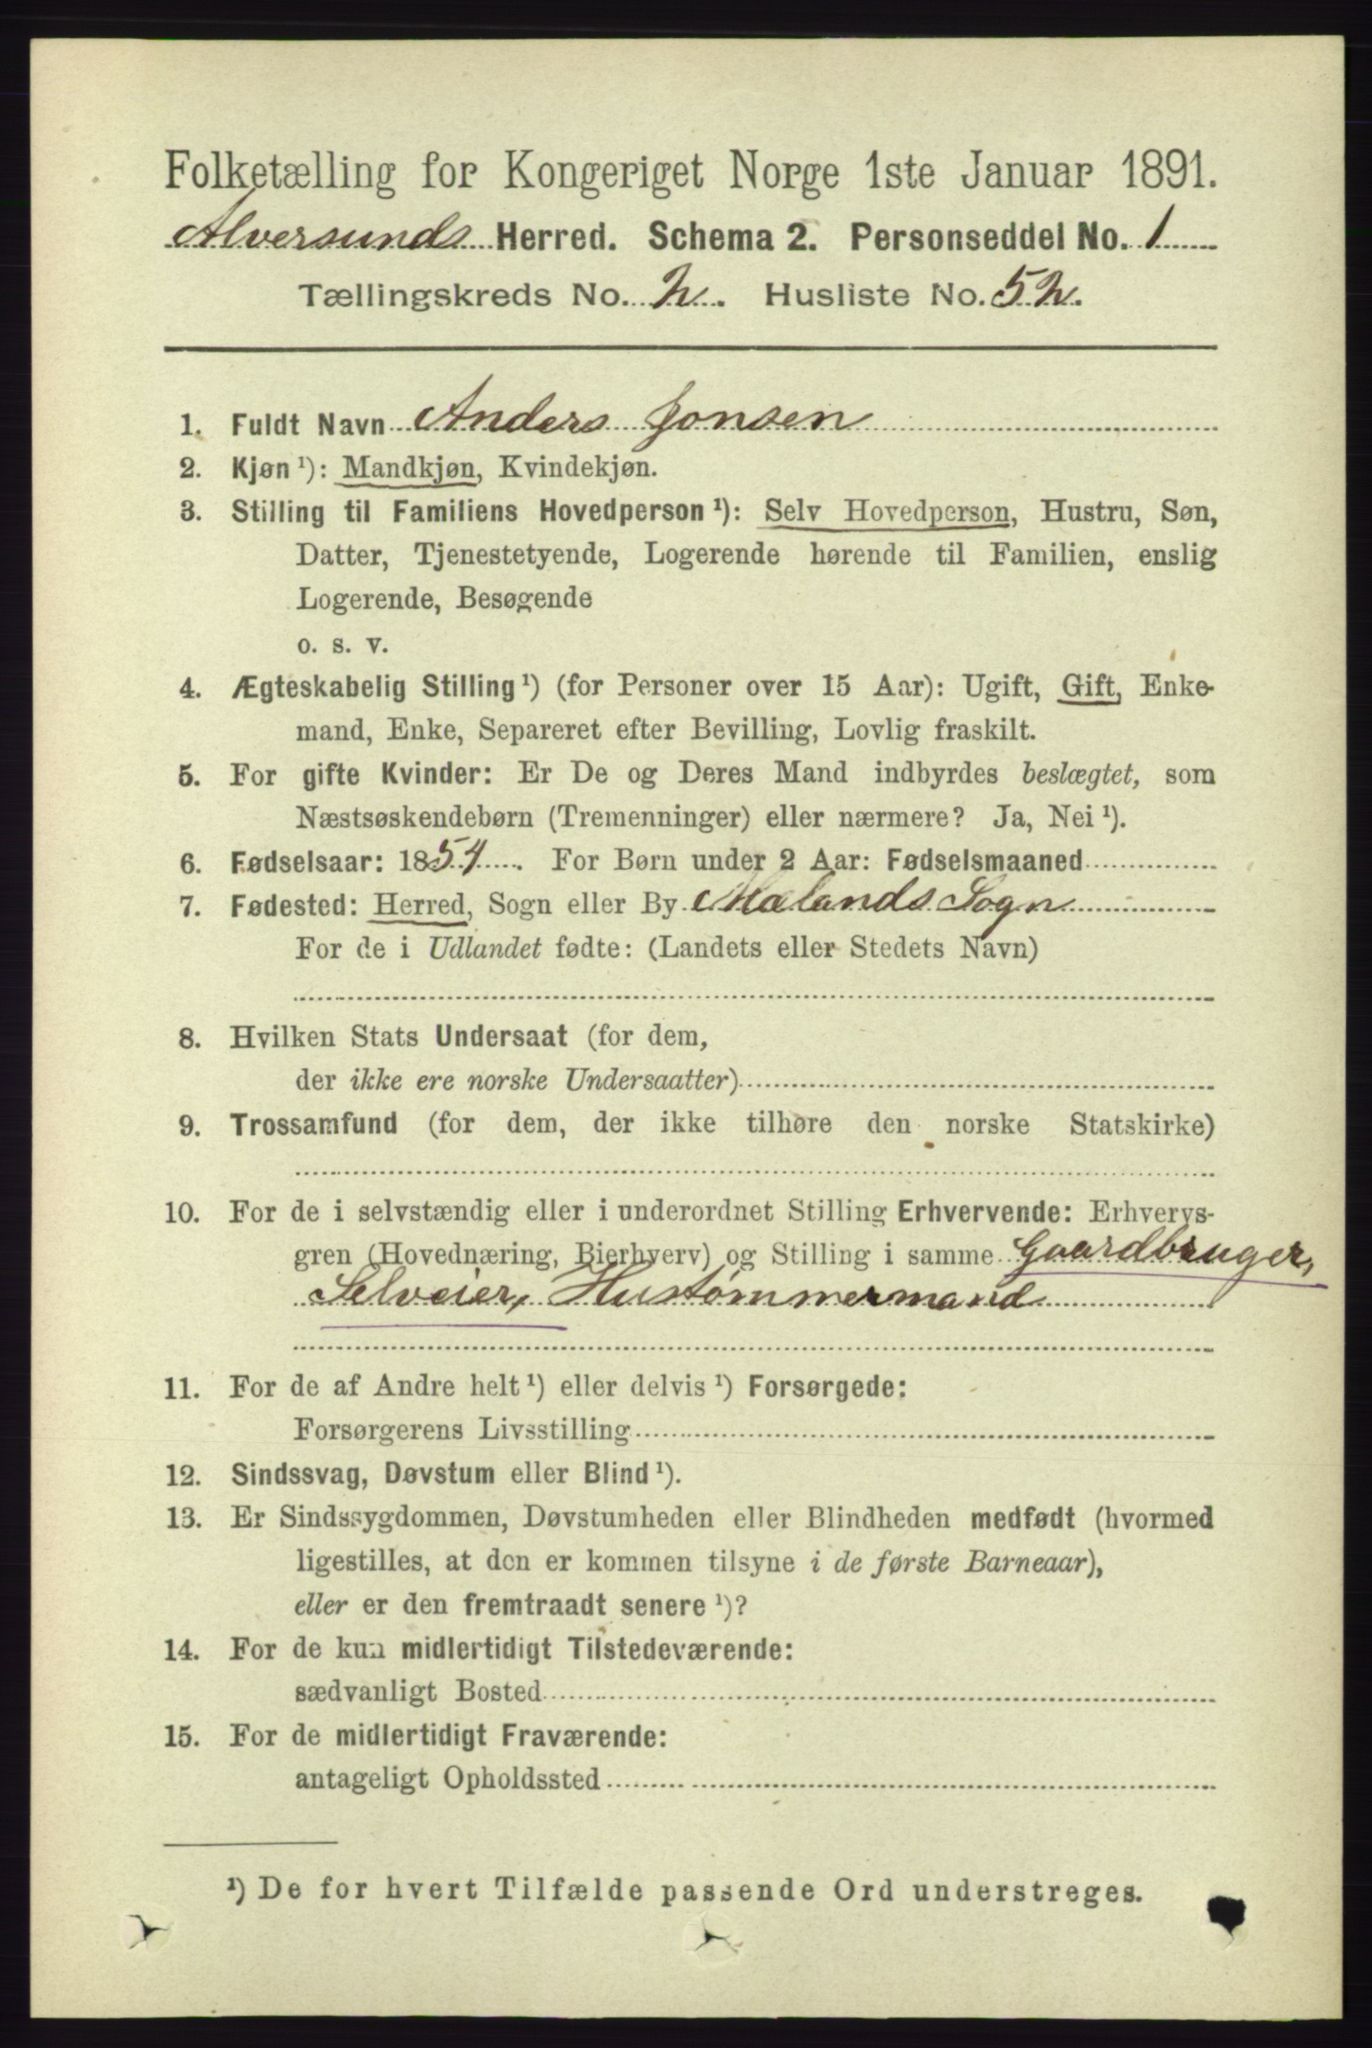 Folketælling for Kongeriget Norge 1ste Januar 1891.
Alversunds Herred. Schema 2. Personseddel No. 1
Tællingskreds No. 2. Husliste No. 52.
1. Fuldt Navn Anders Jonsen
2. Kjøn ¹): Mandkjøn, Kvindekjøn.
3. Stilling til Familiens Hovedperson ¹): Selv Hovedperson, Hustru, Søn,
Datter, Tjenestetyende, Logerende hørende til Familien, enslig
Logerende, Besøgende
o. s. v.
4. Ægteskabelig Stilling ¹) (for Personer over 15 Aar): Ugift, Gift, Enke-
mand, Enke, Separeret efter Bevilling, Lovlig fraskilt.
5. For gifte Kvinder: Er De og Deres Mand indbyrdes beslægtet, som
Næstsøskendebørn (Tremenninger) eller nærmere? Ja, Nei ¹).
6. Fødselsaar: 1854. For Børn under 2 Aar: Fødselsmaaned
7. Fødested: Herred, Sogn eller By Mælands Sogn
For de i Udlandet fødte: (Landets eller Stedets Navn)
8. Hvilken Stats Undersaat (for dem,
der ikke ere norske Undersaatter)
9. Trossamfund (for dem, der ikke tilhøre den norske Statskirke)
10. For de i selvstændig eller i underordnet Stilling Erhvervende: Erhvervs-
gren (Hovednæring, Bierhverv) og Stilling i samme Gaardbruger,
Selveier, Hustømmermand
11. For de af Andre helt ¹) eller delvis ¹) Forsørgede:
Forsørgerens Livsstilling
12. Sindssvag, Døvstum eller Blind ¹).
13. Er Sindssygdommen, Døvstumheden eller Blindheden medfødt (hvormed
ligestilles, at den er kommen tilsyne i de første Barneaar),
eller er den fremtraadt senere ¹)?
14. For de kun midlertidigt Tilstedeværende:
sædvanligt Bosted
15. For de midlertidigt Fraværende:
antageligt Opholdssted
¹) De for hvert Tilfælde passende Ord understreges.